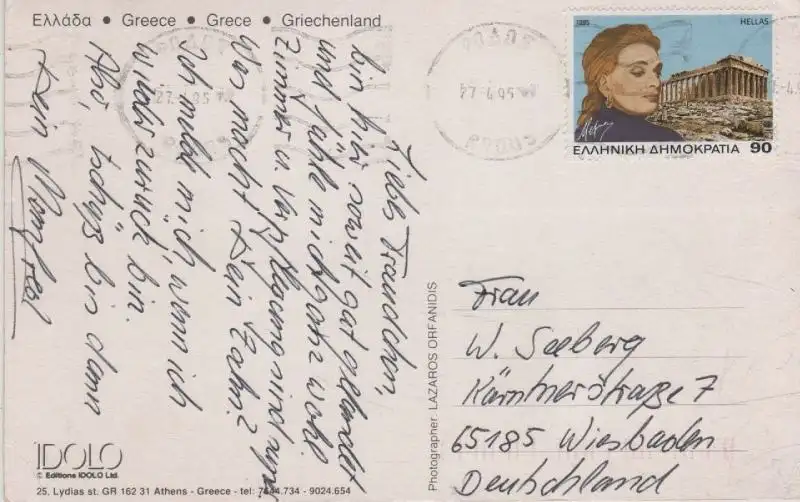 Ελλάδα • Greece • Grece • Griechenland
Liebe Freundchen,
bin hier soweit gut gelandet
und fühle mich ganz wohl.
Zimmer u. Verpflegung sind
Was macht Dein Zahn?
Ich melde mich, wenn ich
wieder zurück bin.
Also, tschüß bis dann
Dein Manfred
IDOLO
© Editions IDOLO Ltd.
25, Lydias st. GR 162 31 Athens - Greece - tel: 7644.734 - 9024.654
Photographer LAZAROS ORFANIDIS
1995
HELLAS
ΕΛΛΗΝΙΚΗ ΔΗΜΟΚΡΑΤΙΑ 90
ΡΟΔΟΣ
27.4.95
RODOS
Frau
W. Seeberg
Kärntnerstraße 7
65185 Wiesbaden
Deutschland